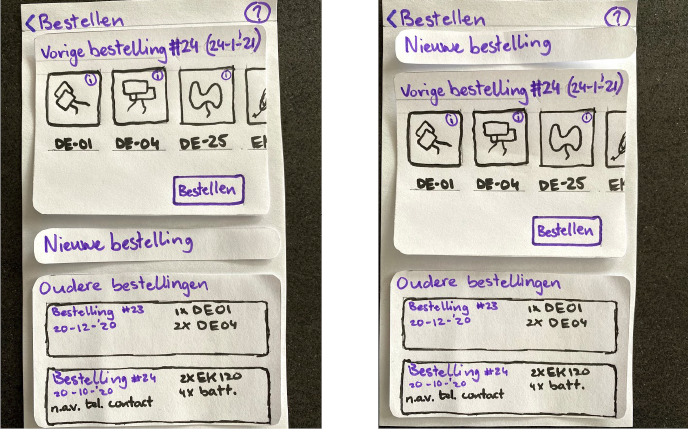 <Bestellen ?
Vorige bestelling #24 (24-1-'21)
i i i
DE-01 DE-04 DE-25 Ek
Bestellen
Nieuwe bestelling
Oudere bestellingen
Bestelling #23 1x DE01
20-12-'20 2x DE04
Bestelling #24 2x EK120
20-10-'20 4x batt.
n.av. tel. contact
<Bestellen ?
Nieuwe bestelling
Vorige bestelling #24 (24-1-'21)
i i i
DE-01 DE-04 DE-25 Ek
Bestellen
Oudere bestellingen
Bestelling #23 1x DE01
20-12-'20 2x DE04
Bestelling #24 2x EK120
20-10-'20 4x batt.
n.av. tel. contact